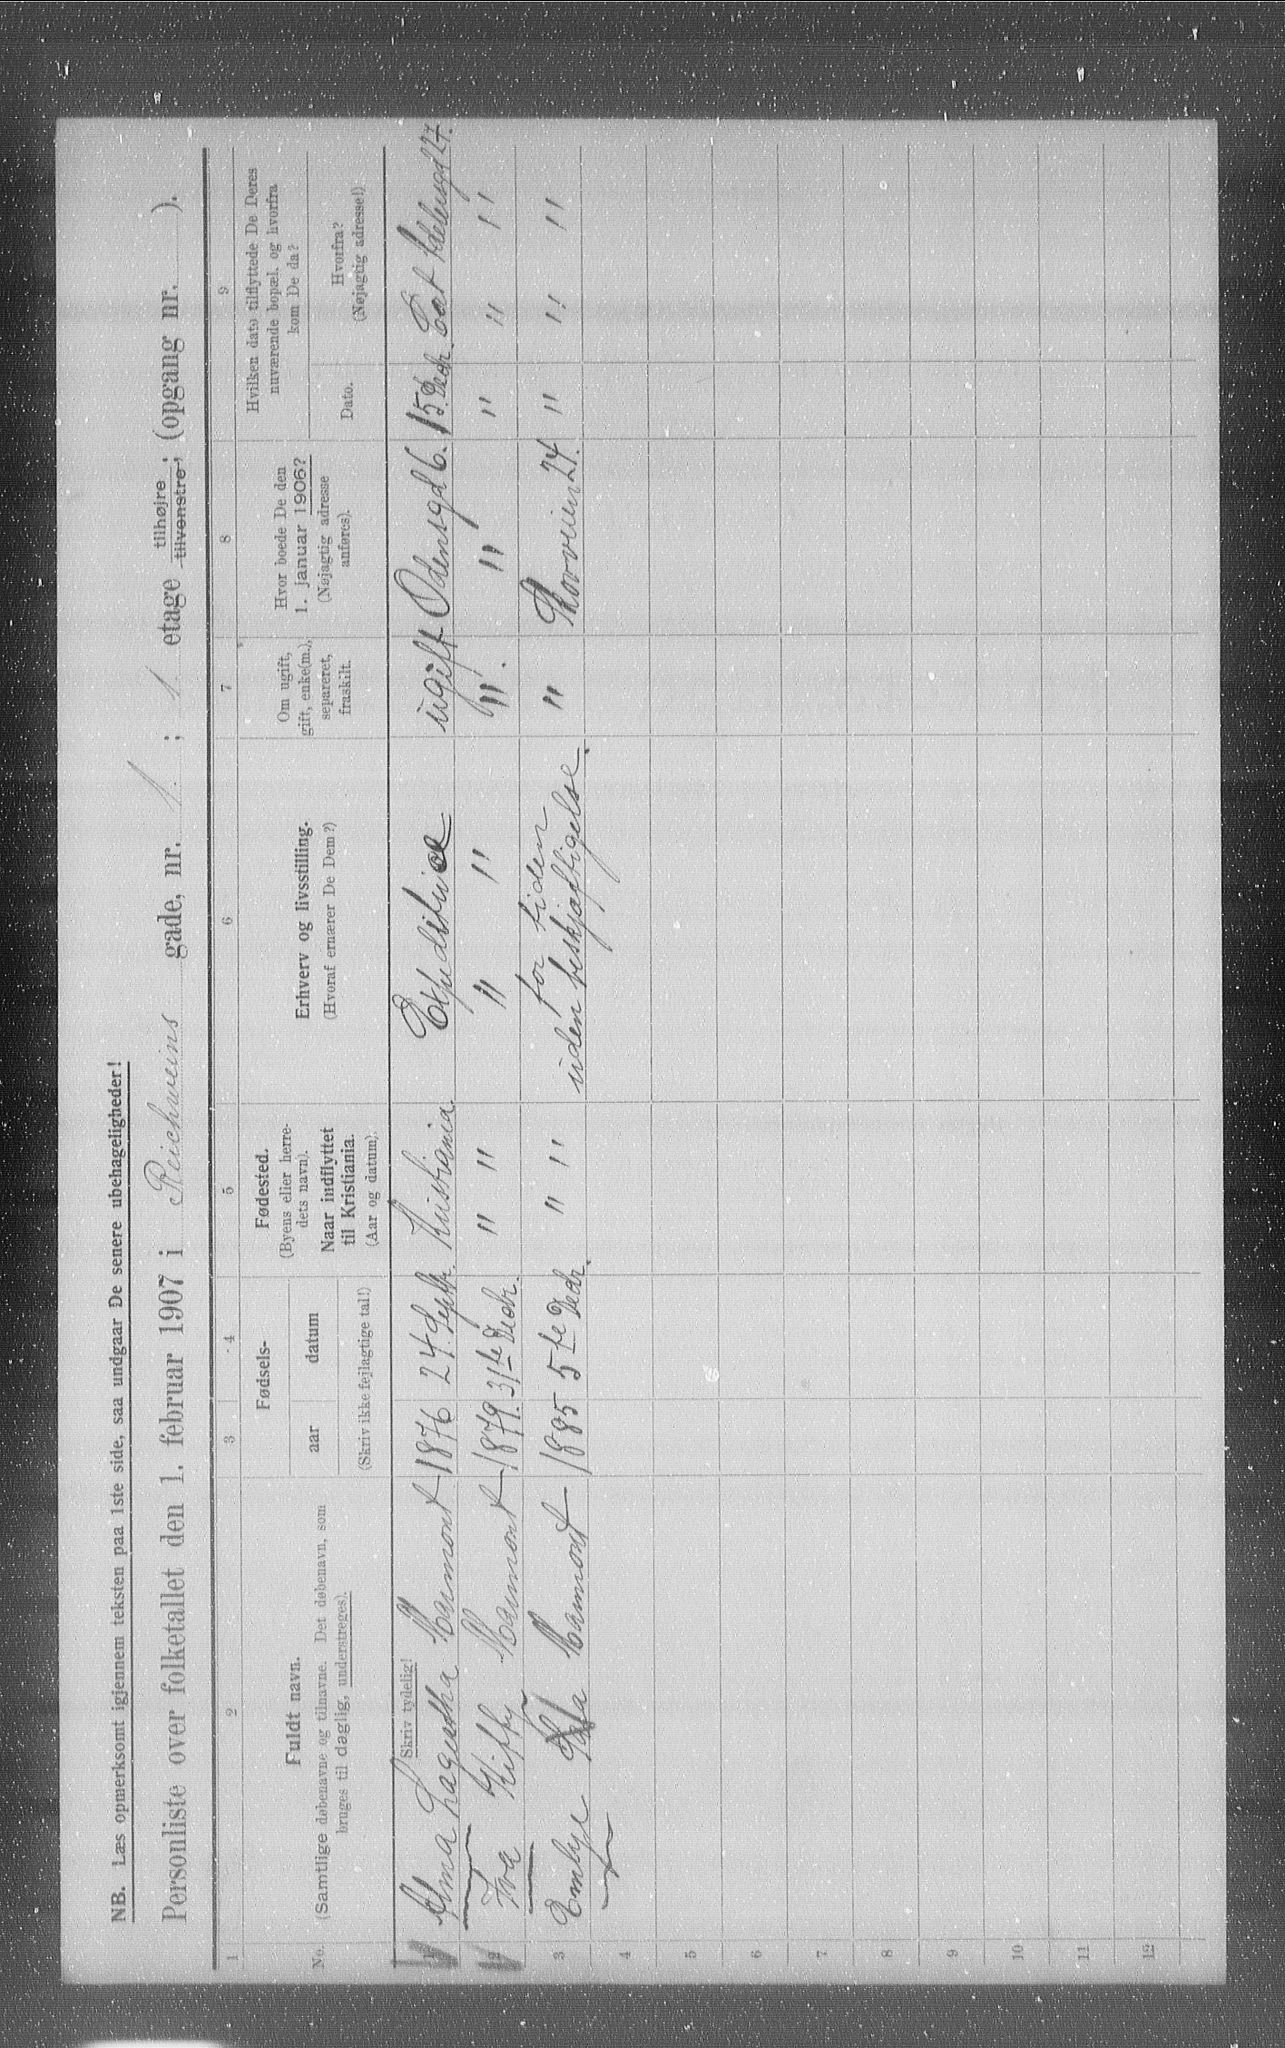 NB. Læs opmerksomt igjennem teksten paa 1ste side, saa undgaar De senere ubehageligheder!
Personliste over folketallet den 1. februar 1907 i Reichweins gade, nr. 1. ; 1 etage tilhøjre tilvenstre ; (opgang nr. ).
1 2 3 4 5 6 7 8 9
No.
Fuldt navn.
(Samtlige døbenavne og tilnavne. Det døbenavn, som
bruges til daglig, understreges).
Fødsels-
aar datum
(Skriv ikke fejlagtige tal!)
Fødested.
(Byens eller herre-
dets navn).
Naar indflyttet
til Kristiania.
(Aar og datum).
Erhverv og livsstilling.
(Hvoraf ernærer De Dem?)
Om ugift,
gift, enke(m.),
separeret,
fraskilt.
Hvor boede De den
1. januar 1906?
(Nøjagtig adresse
anføres).
Hvilken dato tilflyttede De Deres
nuværende bopæl, og hvorfra
kom De da?
Dato.
Hvorfra?
(Nøjagtig adresse!)
Skriv tydelig!
1 Alma Hagustha 1876 24. Septb. Kristiania. ugift Odensgd 6. 15. Decbr. 27.
2 1879. 31te Decbr. " " " " " " " " "
3 Emlye 1885 5te Decbr. " " for tiden
uden beskjæftigelse. " Skovveien 24. " " "
4
5
6
7
8
9
10
11
12